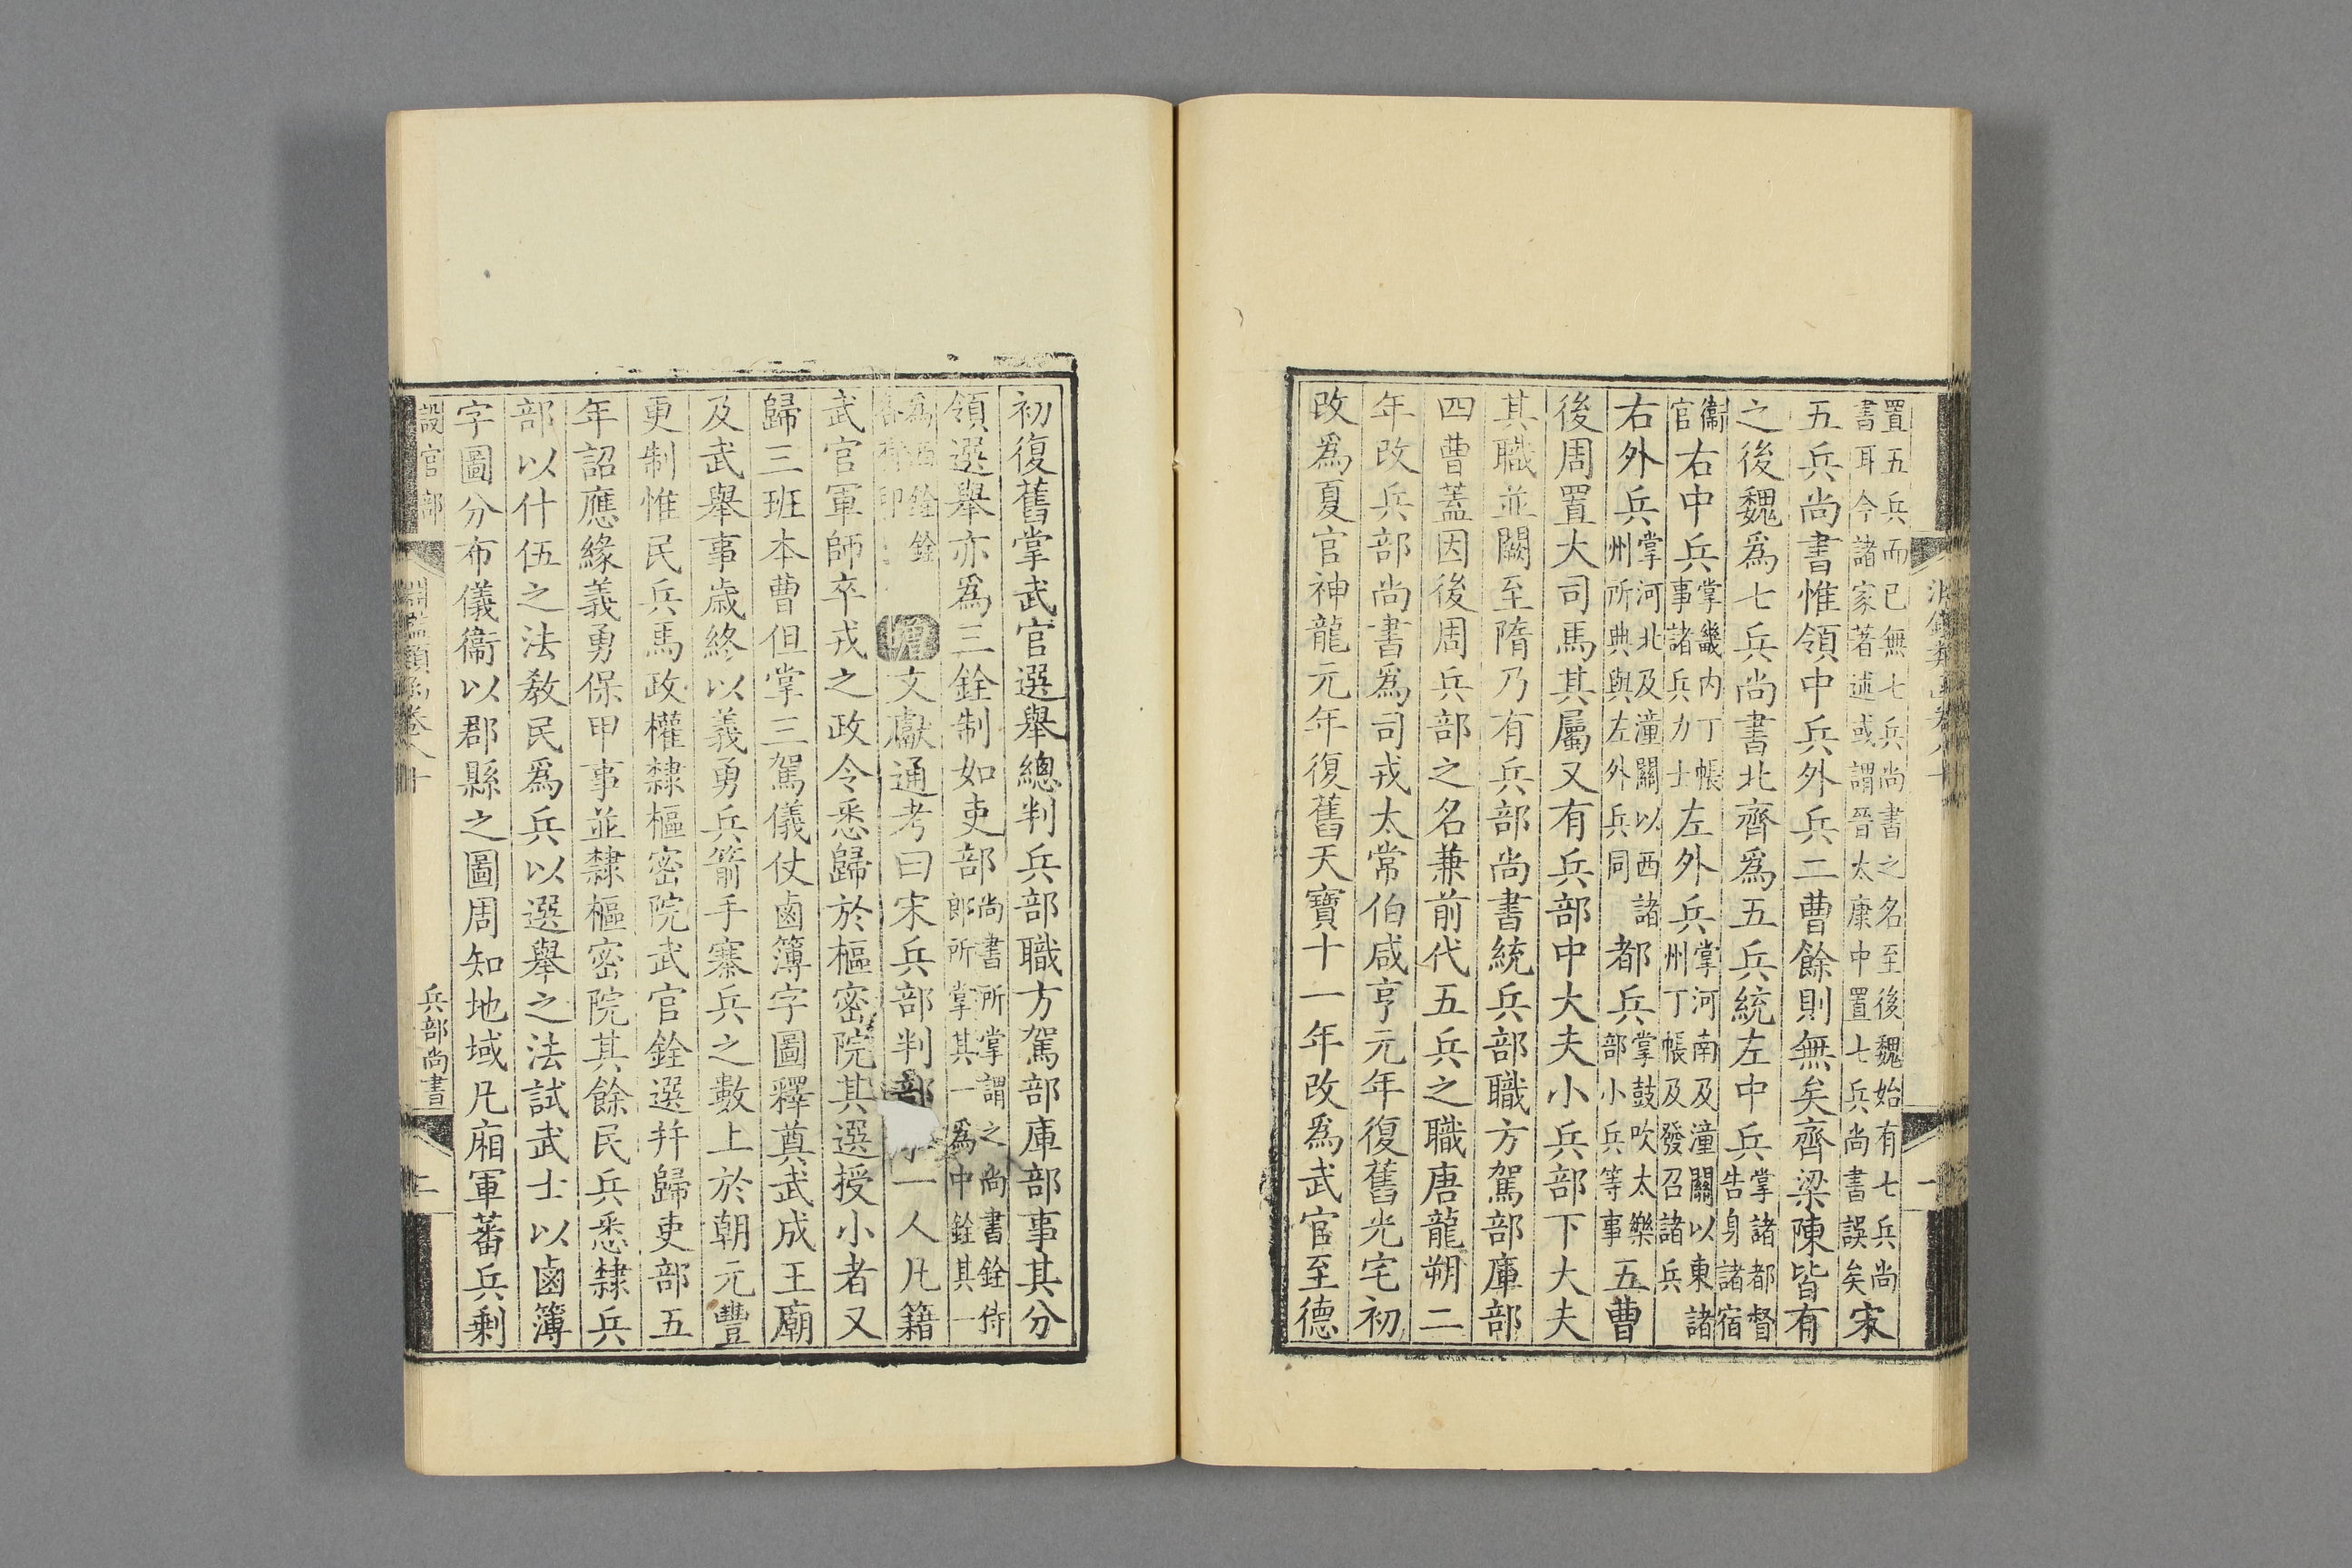 置五兵而已無七兵尚書之名至後魏始有七兵尚
書耳今諸家著述或謂晉太康中置七兵尚書誤矣宋
五兵尚書惟領中兵外兵二曹餘則無矣齊梁陳皆有
之後魏爲七兵尚書北齊爲五兵統左中兵掌諸都督告身諸宿
衞官右中兵掌畿内丁帳事諸兵力士左外兵掌河南及潼關以東諸州丁帳及發召諸兵
右外兵掌河北及潼關以西諸州所典與左外兵同都兵掌鼓吹太樂部小兵等事五曹
後周置大司馬其屬又有兵部中大夫小兵部下大夫
其職並闕至隋乃有兵部尚書統兵部職方駕部庫部
四曹蓋因後周兵部之名兼前代五兵之職唐龍朔二
年改兵部尚書爲司戎太常伯咸亨元年復舊光宅初
改爲夏官神龍元年復舊天寶十一年改爲武官至德
初復舊掌武官選舉總判兵部職方駕部庫部事其分
領選舉亦爲三銓制如吏部尚書所掌謂之尚書銓侍郎所掌其一爲中銓其一
爲西銓銓各有印 增文獻通考曰宋兵部判部一人凡籍
武官軍師卒戎之政令悉歸於樞密院其選授小者又
歸三班本曹但掌三駕儀仗鹵簿字圖釋奠武成王廟
及武舉事歲終以義勇兵箭手寨兵之數上於朝元豐
更制惟民兵馬政權隸樞密院武官銓選并歸吏部五
年詔應緣義勇保甲事並隸樞密院其餘民兵悉隸兵
部以什伍之法敎民爲兵以選舉之法試武士以鹵簿
字圖分布儀衞以郡縣之圖周知地域凡廂軍蕃兵剩
設官部 淵鑑類函卷八十 兵部尚書 二